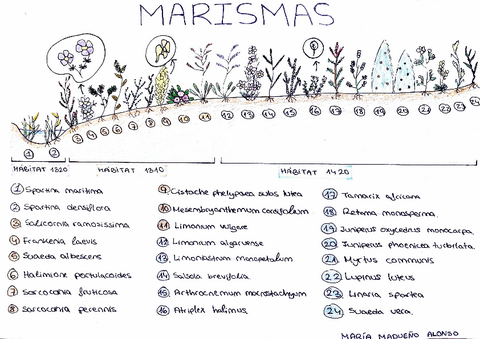 MARISMAS
1 2 3 4 5 6 7 8 9 10 11 12 13 14 15 16 17 18 19 20 21 22 23 24
HÁBITAT 1320 HÁBITAT 1310 HÁBITAT 1420
1 Spartina maritima
2 Spartina densiflora
3 Salicornia ramosissima
4 Frankenia laevis
5 Suaeda albescens
6 Halimione portulacoides
7 Sarcocornia fruticosa
8 Sarcocornia perennis
9 Cistache phelypaea subs lutea
10 Mesembryanthemum cordifolium
11 Limonium vulgare
12 Limonium algarvense
13 Limoniastrum monopetalum
14 Salsola brevifolia
15 Arthrocnemum macrostachyum
16 Atriplex halimus
17 Tamarix africana
18 Retama monosperma
19 Juniperus oxycedrus monocarpa
20 Juniperus phoenicea turbilata
21 Myrtus communis
22 Lupinus luteus
23 Linaria spartea
24 Suaeda vera
MARÍA MADUEÑO ALONSO